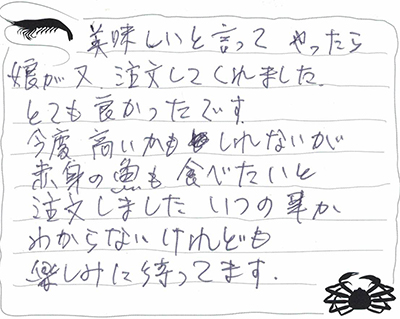 美味しいと言って やったら
娘が又 注文してくれました.
とても良かったです.
今度 高いかもしれないが
赤身の魚も 食べたいと
注文しました いつの事か
わからないけれども
楽しみに待ってます.